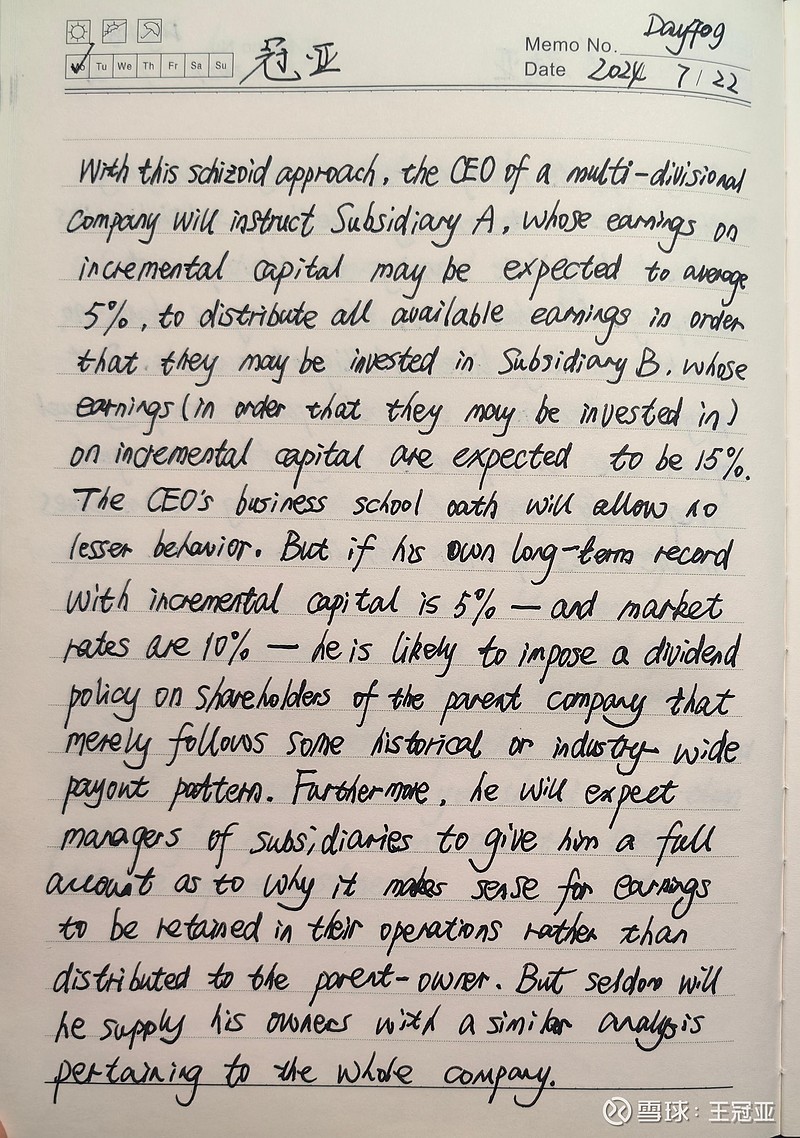 冠亚
Memo No. Day709
Mo Tu We Th Fr Sa Su
Date 2024 7/22
With this schizoid approach, the CEO of a multi-divisional
company will instruct Subsidiary A, whose earnings on
incremental capital may be expected to average
5%, to distribute all available earnings in order
that they may be invested in Subsidiary B, whose
earnings (in order that they may be invested in)
on incremental capital are expected to be 15%.
The CEO's business school oath will allow no
lesser behavior. But if his own long-term record
with incremental capital is 5% — and market
rates are 10% — he is likely to impose a dividend
policy on shareholders of the parent company that
merely follows some historical or industry-wide
payout pattern. Furthermore, he will expect
managers of subsidiaries to give him a full
account as to why it makes sense for earnings
to be retained in their operations rather than
distributed to the parent-owner. But seldom will
he supply his owners with a similar analysis
pertaining to the whole company.
雪球：王冠亚